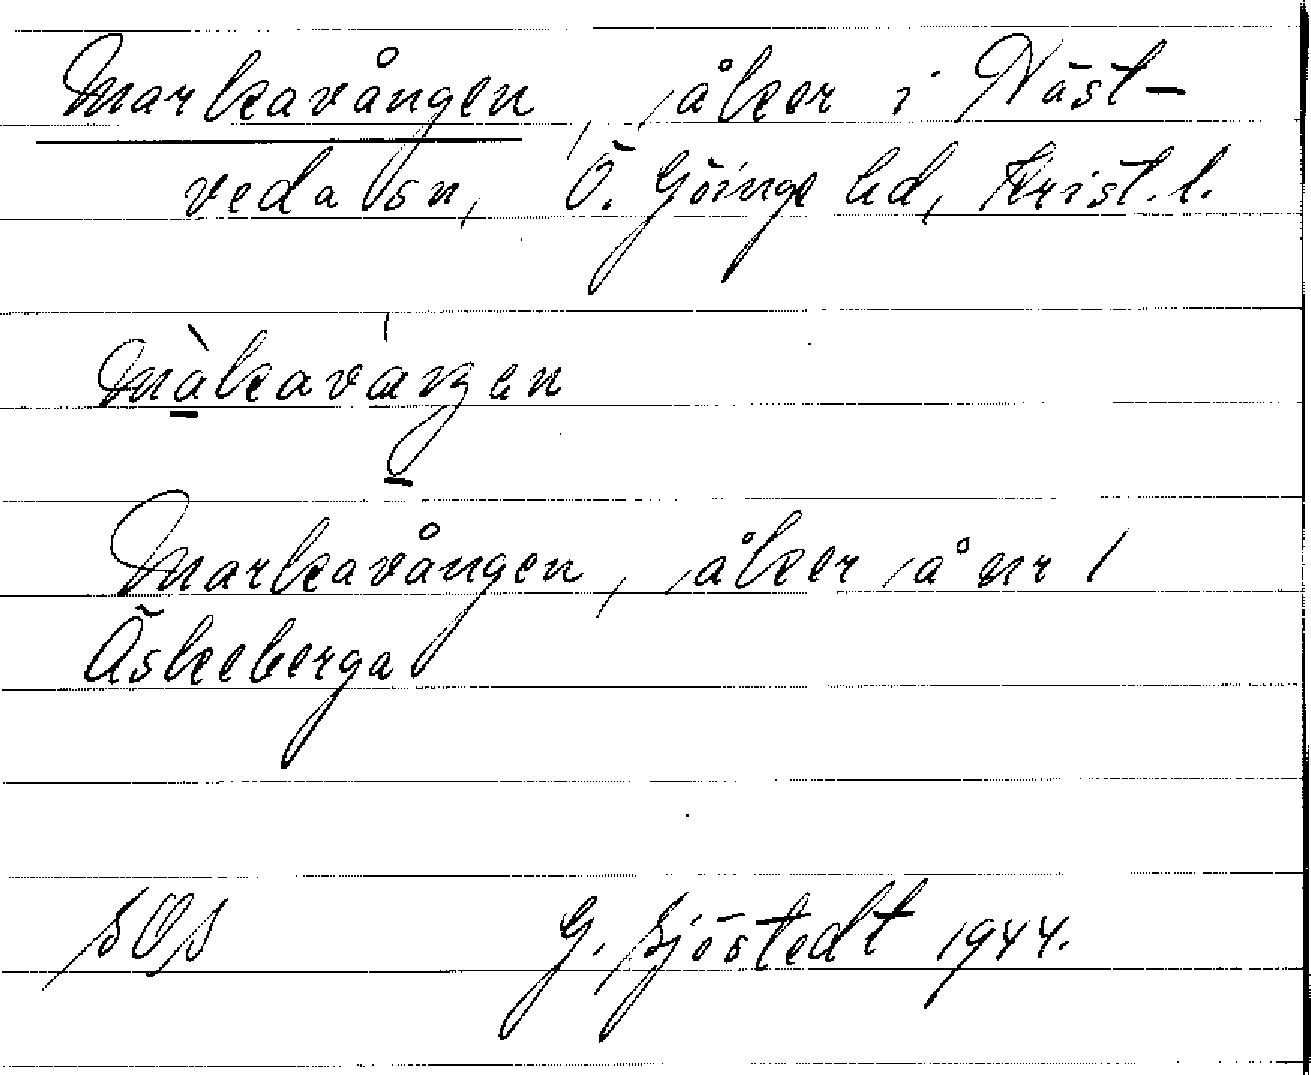 Markavången, åker i Näst-
veda sn, Ö. Göinge hd, Krist. l.
Markavången, åker å nr 1
Äskeberga
SOS G. Sjöstedt 1944.